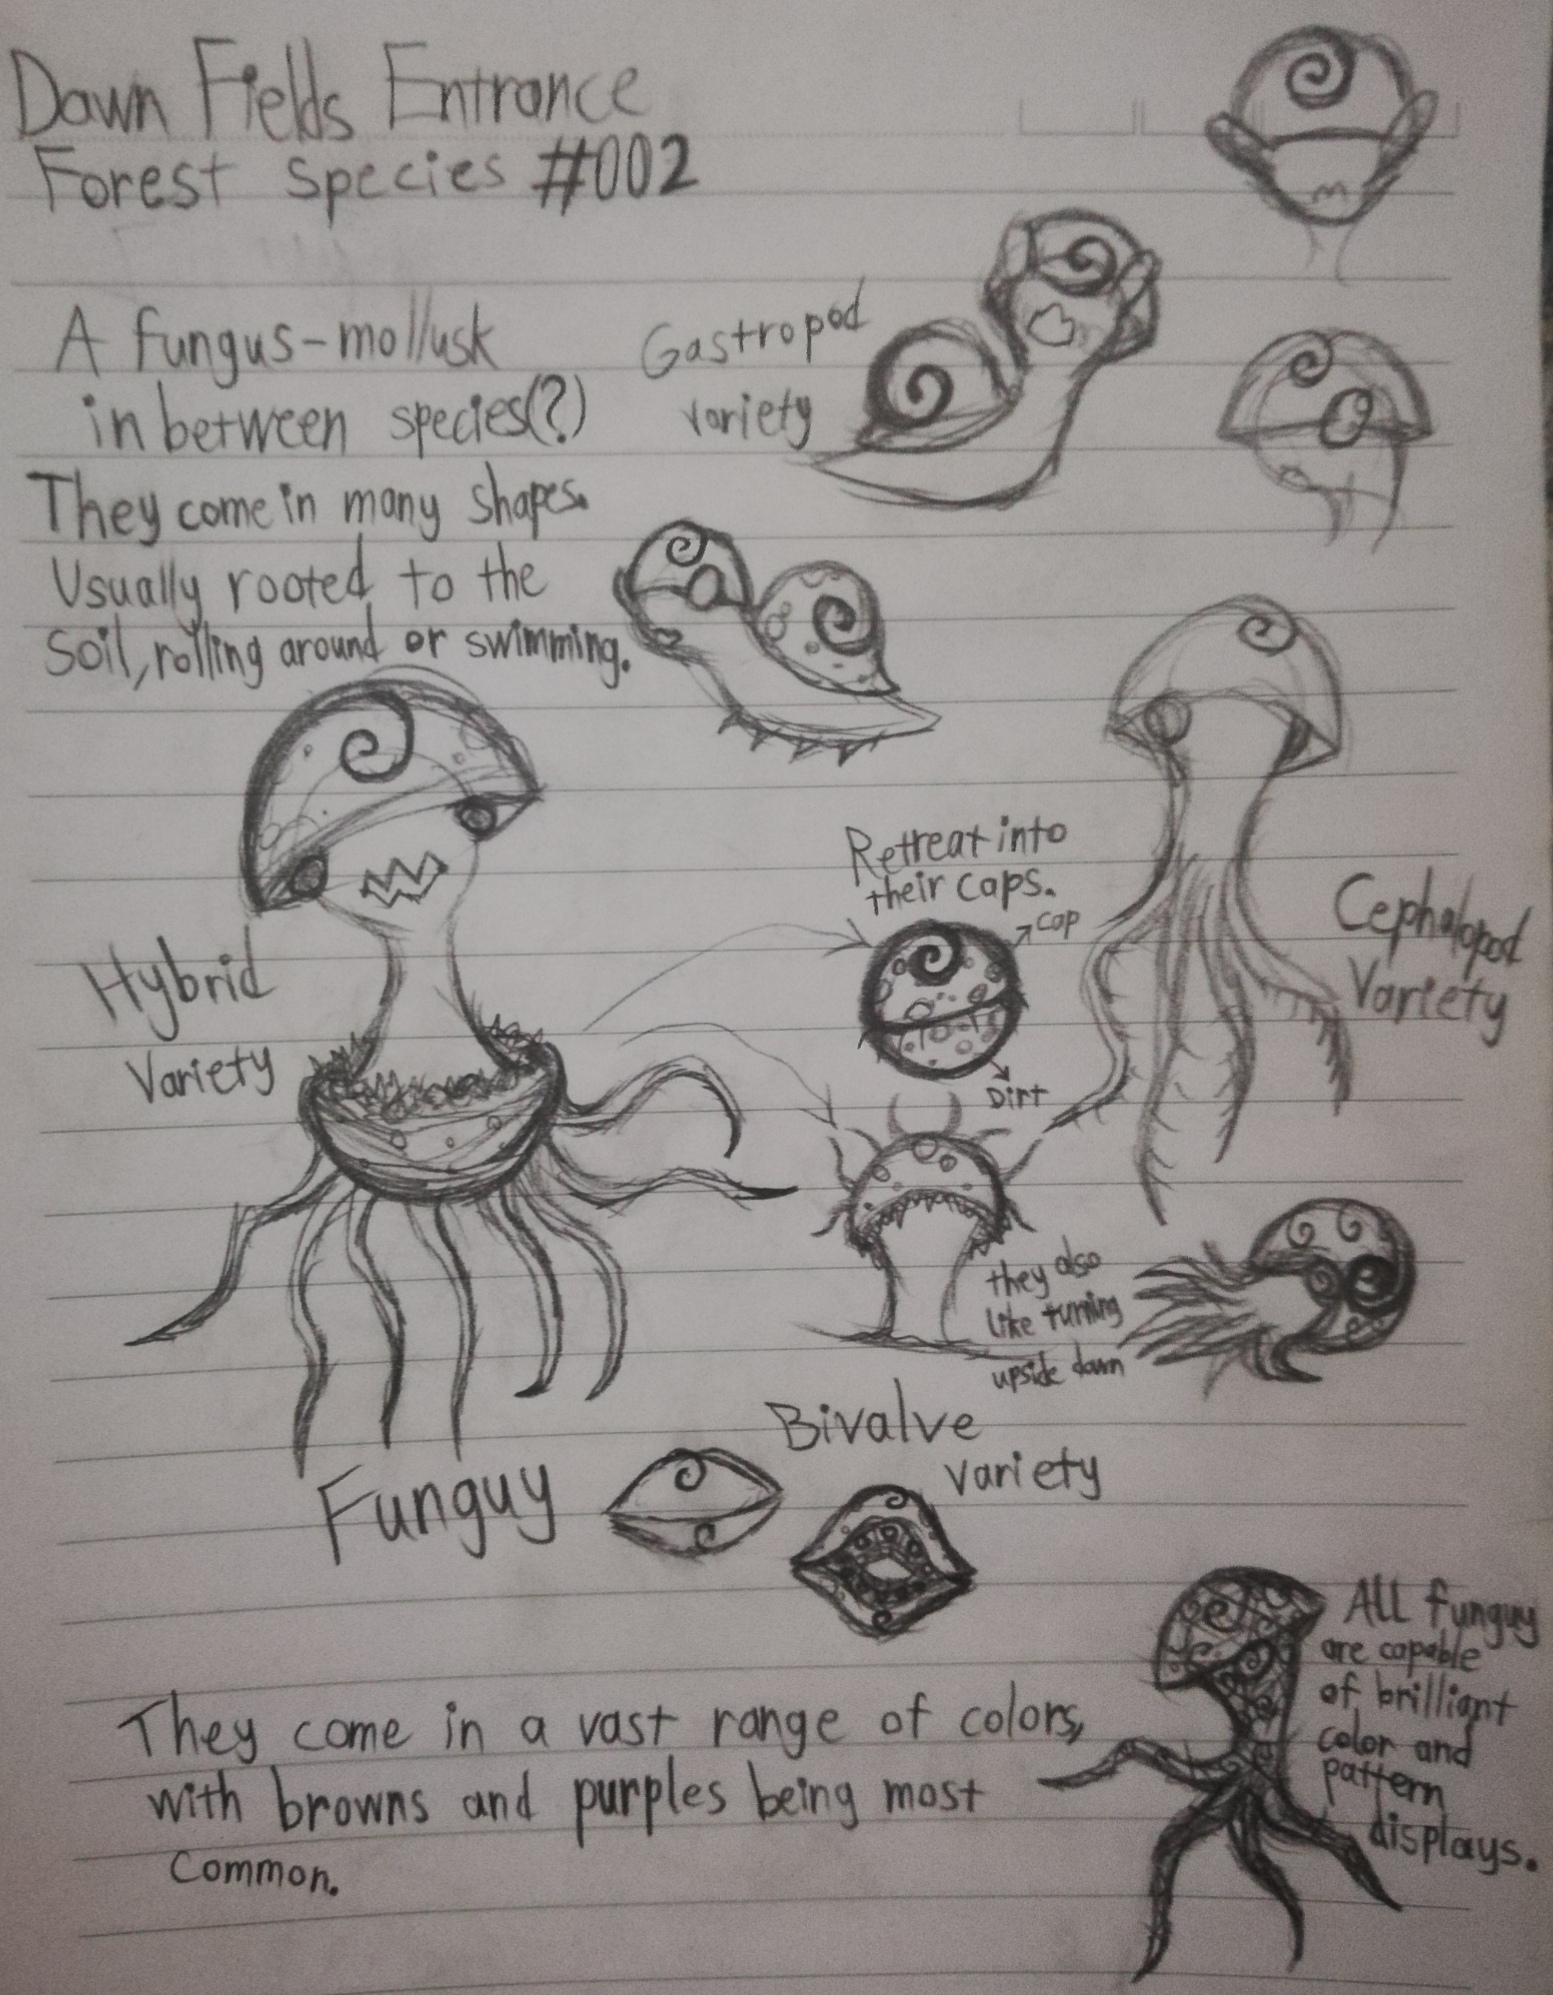 Dawn Fields Entrance
Forest species #002
A fungus-mollusk
in between species(?)
They come in many shapes.
Usually rooted to the
soil, rolling around or swimming.
Gastropod
variety
Hybrid
Variety
Retreat into
their caps.
cap
Dirt
Cephalopod
Variety
they also
like turning
upside down
Bivalve
variety
Funguy
ALL funguy
are capable
of brilliant
color and
pattern
displays.
They come in a vast range of colors,
with browns and purples being most
common.